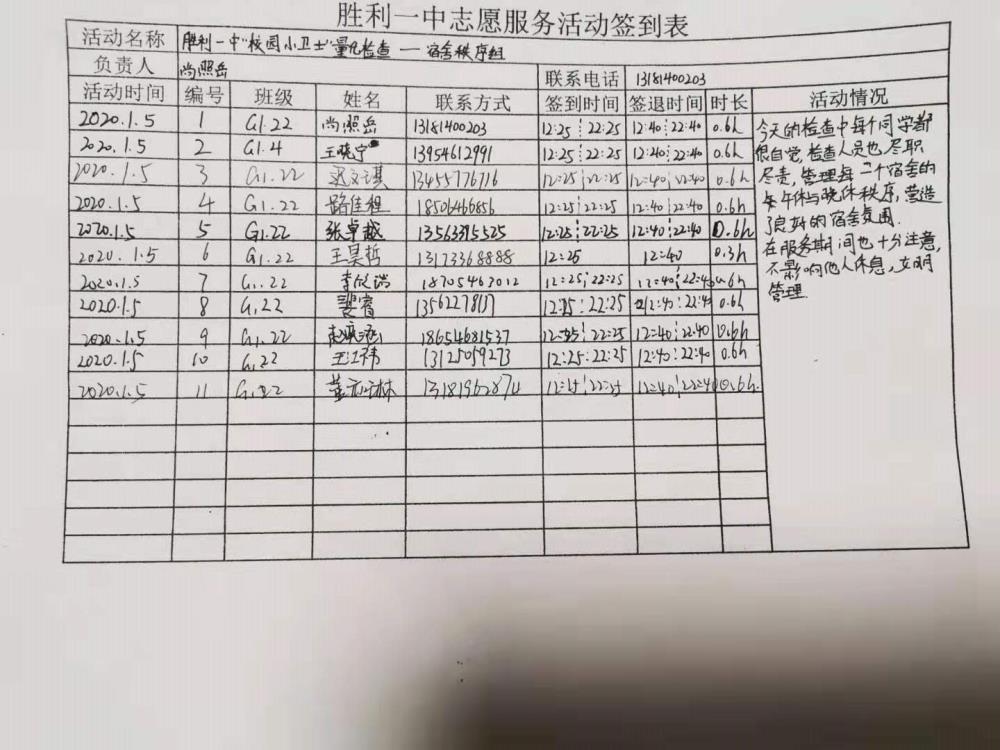 胜利一中志愿服务活动签到表
活动名称 胜利一中"校园小卫士"量化检查 — 宿舍秩序组
负责人 尚照岳 联系电话 13181400203
活动时间 编号 班级 姓名 联系方式 签到时间 签退时间 时长 活动情况
2020.1.5 1 G1.22 尚照岳 13181400203 12:25 22:25 12:40 22:40 0.6h
2020.1.5 2 G1.4 王晓宁 13954612991 12:25 22:25 12:40 22:40 0.6h
2020.1.5 3 G1.22 13455776716 12:25 22:25 12:40 22:40 0.6h
2020.1.5 4 G1.22 路佳程 18506466856 12:25 22:25 12:40 22:40 0.6h
2020.1.5 5 G1.22 张卓越 13563375525 12:25 22:25 12:40 22:40 0.6h
2020.1.5 6 G1.22 王昊哲 13173368888 12:25 12:40 0.3h
2020.1.5 7 G1.22 18705463012 12:25 22:25 12:40 22:40 0.6h
2020.1.5 8 G1.22 12:25 22:25 12:40 22:40 0.6h
2020.1.5 9 G1.22 18654681537 22:25 12:40 22:40 0.6h
2020.1.5 10 G1.22 王江祎 13125059273 12:25 22:25 12:40 22:40 0.6h
2020.1.5 11 G1.22 12:40 22:40 0.6h.
今天的检查中每个同学都
很自觉,检查人员也尽职
尽责,管理每一个宿舍的
午休与晚休秩序,营造
了良好的宿舍氛围.
在服务期间也十分注意,
不影响他人休息,文明
管理